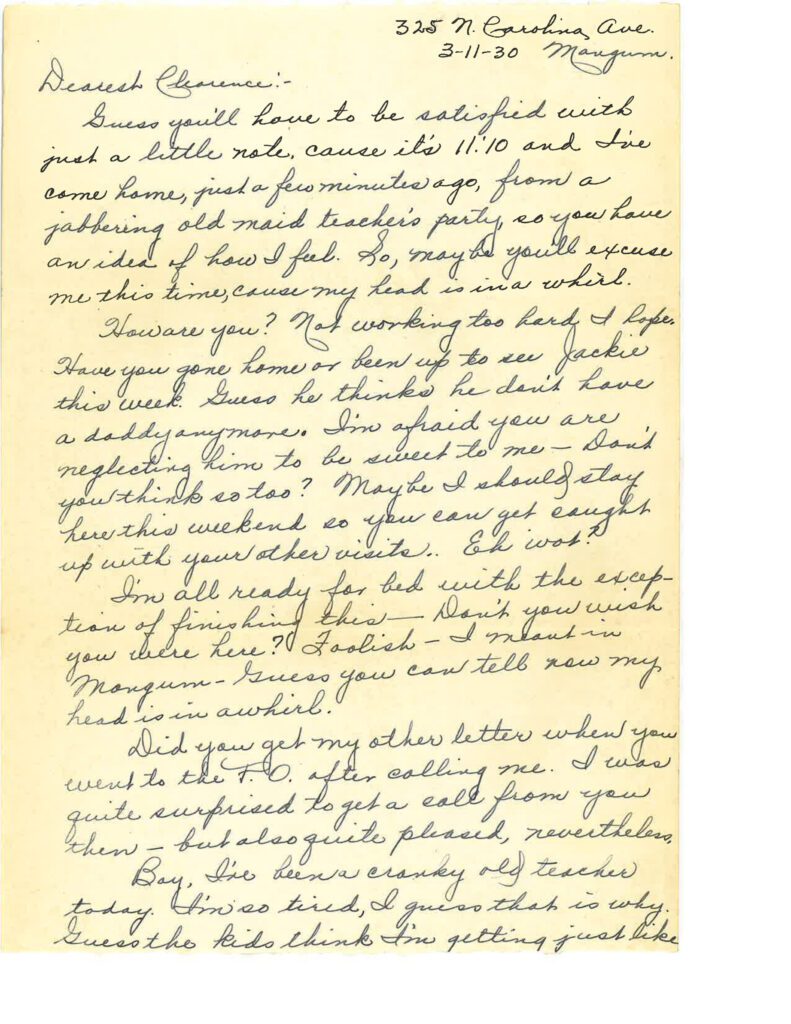 325 N. Carolina Ave.
3-11-30 Mangum.
Dearest Clarence:-
Guess you'll have to be satisfied with
just a little note, cause it's 11:10 and I've
come home, just a few minutes ago, from a
jabbering old maid teacher's party, so you have
an idea of how I feel. So, maybe you'll excuse
me this time, cause my head is in a whirl.
How are you? Not working too hard, I hope.
Have you gone home or been up to see Jackie
this week. Guess he thinks he don't have
a daddy anymore. I'm afraid you are
neglecting him to be sweet to me — Don't
you think so too? Maybe I should stay
here this weekend so you can get caught
up with your other visits.. Eh wot?
I'm all ready for bed with the excep-
tion of finishing this — Don't you wish
you were here? Foolish — I meant in
Mangum — Guess you can tell now my
head is in a whirl.
Did you get my other letter when you
went to the P.O. after calling me. I was
quite surprised to get a call from you
then — but also quite pleased, nevertheless.
Boy, I've been a cranky old teacher
today. I'm so tired, I guess that is why.
Guess the kids think I'm getting just like